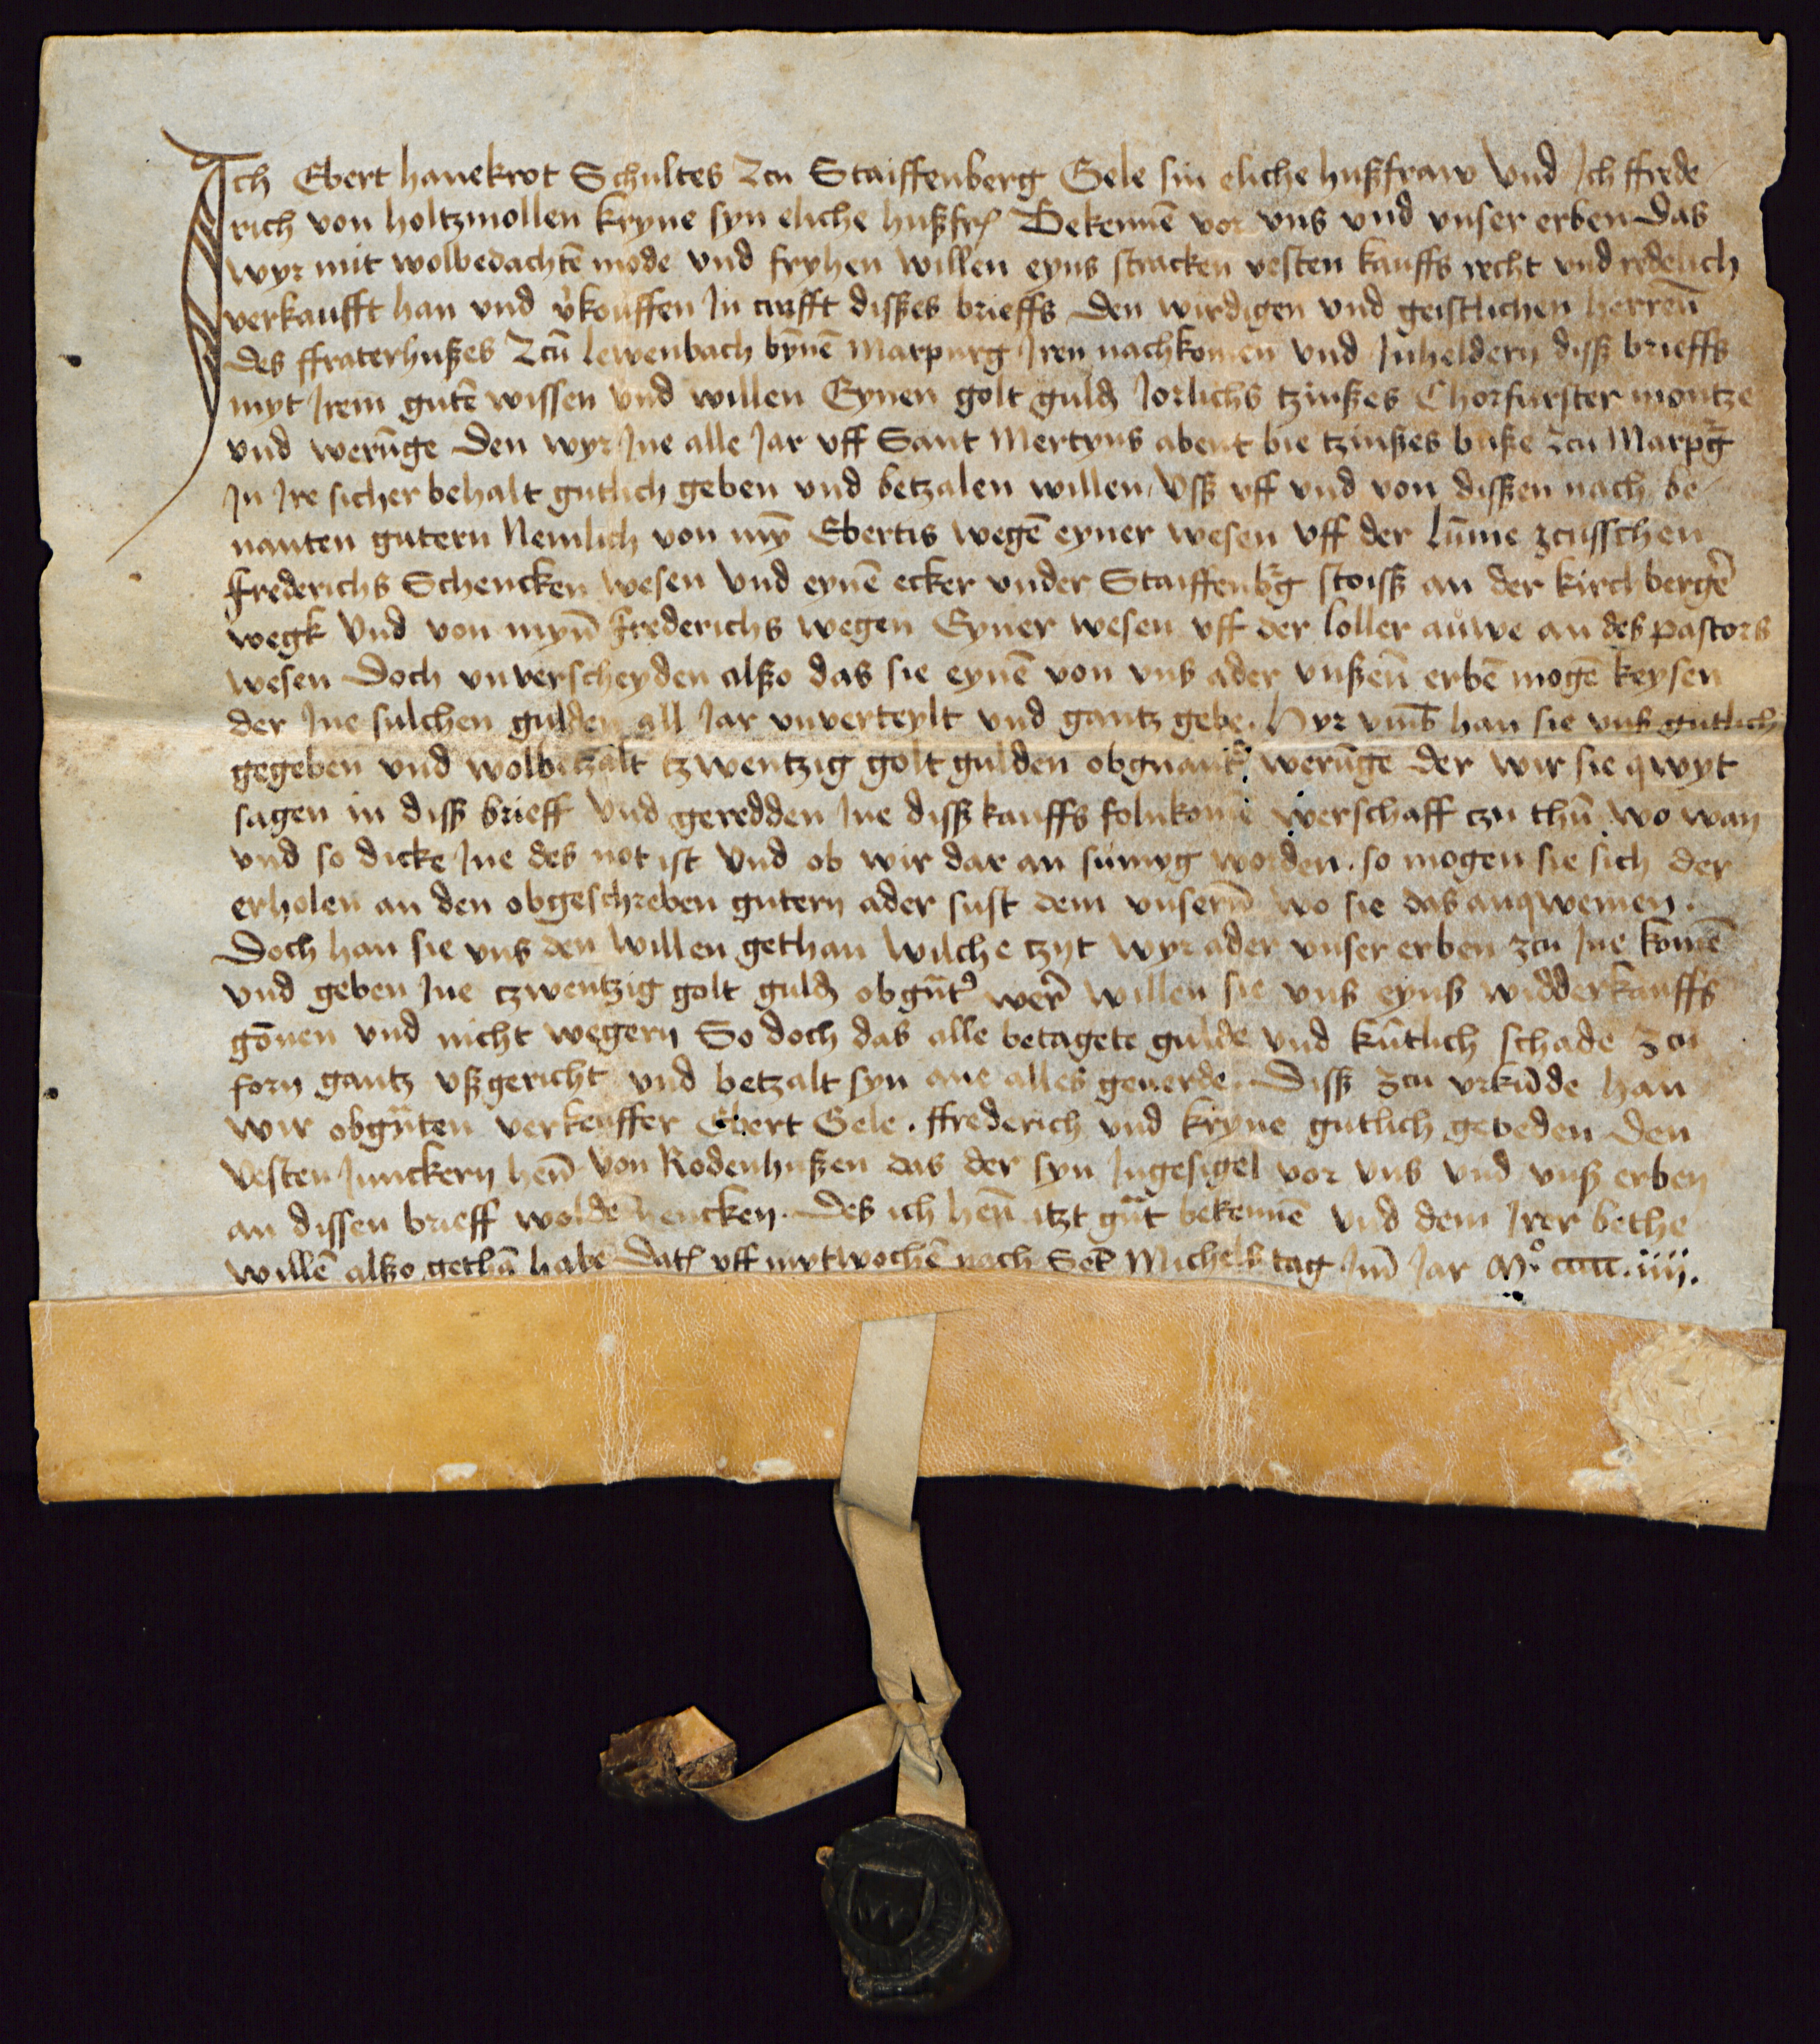 Ich Ebert hanekrot Schultes Zcu Staiffenberg Gele sin eliche hußfraw Vnd Ich ffrede
rich von holtzmollen kryne syn eliche hußfr Bekennē vor vns vnd vnser erben das
wyr mit wolbedachtē mode vnd fryhen willen eyns stracken vesten kauffs recht vnd redelich
verkaufft han vnd v̓kouffen In crafft dißes brieffs den wirdigen vnd geistlichen herren̄
des ffraterhußes Zcū lewenbach bȳnē Marpurg Iren nachkomen vnd Inheldern diß brieffs
myt Irem gutē wissen vnd willen Eynen golt guld Iorlichs tzinßes Chorfurster montze
vnd werūge den wyr Ine alle Iar vff Sant Mertyns abent bie tzinßes buße zcu Marpḡ
In Ire sicher behalt gutlich geben vnd betzalen willen vß vff vnd von dißen nach be
nanten gutern Nemlich von mȳ Ebertis wegē eyner wesen vff der lūme zcusschen
Frederichs Schencken wesen Vnd eynē ecker vnder Staiffenb̄g stoiß an der kirchbergē
wegk Vnd von mynē frederichs wegen Eyner wesen vff der loller aůwe an des pastors
wesen Doch vnverscheyden alßo das sie eynē von vns ader vnßen̄ erbē mogē keysen
der Ine sulchen gulden all Iar vnverteylt vnd gantz gebe. Hyr vmb han sie vns gutlich
gegeben vnd wolbetzalt tzwentzig golt gulden obgnant werūge der wir sie qwyt
sagen in diß brieff Vnd geredden Ine diß kauffs folnkome werschaff tzu thū wo wan
vnd so dicke Ine des not ist Vnd ob wir dar an sümyg worden. so mogen sie sich der
erholen an den obgeschreben gutern ader sust dem vnsern̄ wo sie das anqwemen.
Doch han sie vns den willen gethan wilche tzyt wyr ader vnser erben zcu Ine komē
vnd geben Ine tzwentzig golt guld obgn̄t wer̄ willen sie vns eyns widderkauffs
gōnen vnd nicht wegern So doch das alle betagete gulde vnd kūtlich schade zcu
forn gantz vßgericht vnd betzalt syn ane alles geuerde. Diß zcu vrkūde han
wir obgn̄ten verkeuffer Ebert Gele. ffrederich vnd kryne gutlich gebeden den
vesten Junckern hen̄ von Rodenhußen das der syn Ingesigel vor vns vnd vnß erben
an dissen brieff wolde hencken. Des ich hen̄ itzt gn̄t bekennē vnd dem Irer bethe
willē alßo gethā habe Dat vff mytwochē nach Sct Michels tag Im Iar Mͦ. cccc. iiij.